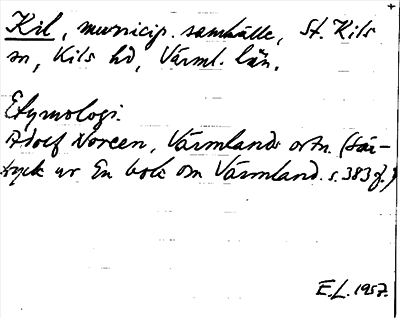 Kil, municip. samhälle, St. Kils
sn, Kils hd, Värml. län.
Etymologi.
Adolf Noreen, Värmlands ortn. (Sär-
tryck ur En bok om Värmland. s. 383 f.)
E.L. 1957.